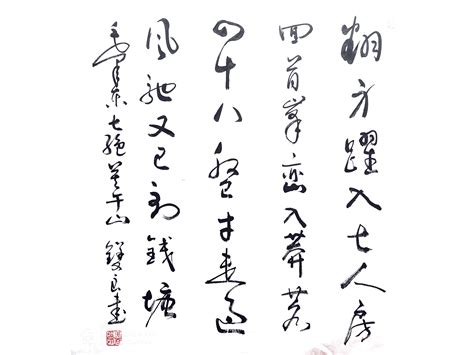 翻身躍入七人房
回首峯巒入莽蒼
四十八盤才走過
風馳又已到錢塘
毛澤東七絕莫干山 良書